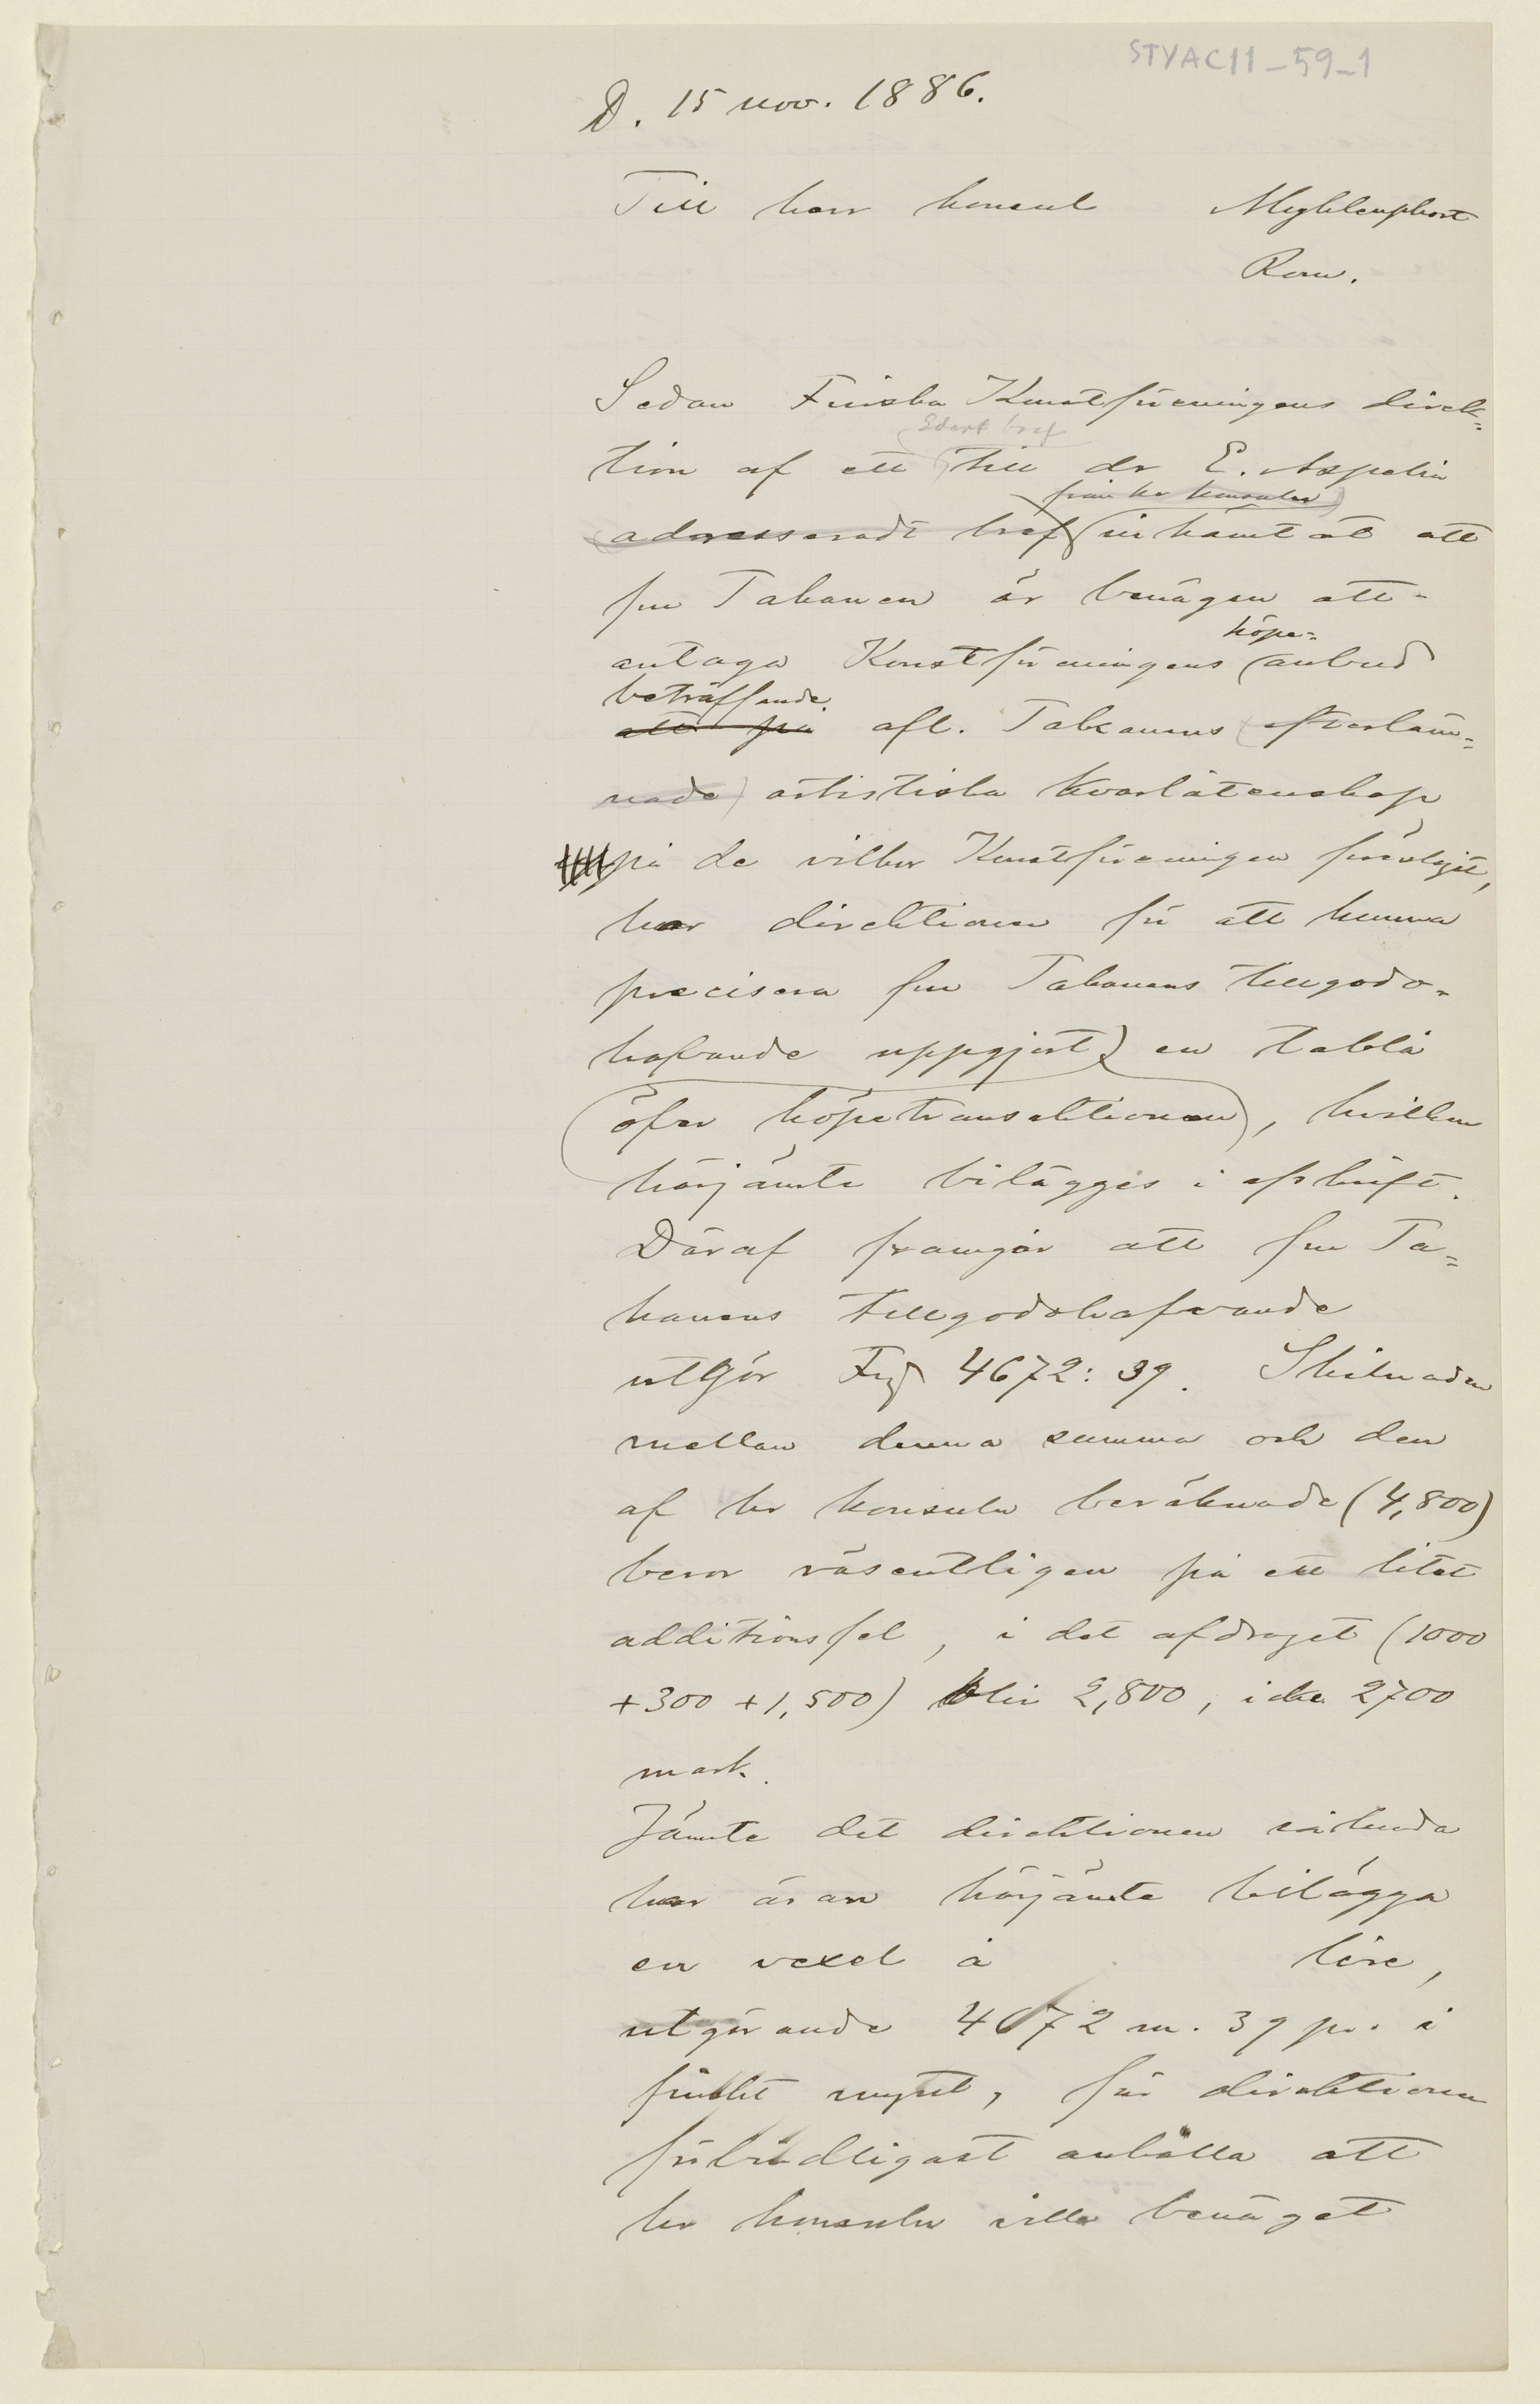 STYAC11_59_1
D. 15 nov. 1886.
Till herr konsul Myhlenphort
Rom.
Sedan Finska Konstföreningens direk=
Edert bref
tion af ett till dr E. Aspelin
från hr konsuln
adresseradt bref inhämtat att
fru Takanen är benägen att
köpe=
antaga Konstföreningens anbud
beträffande
att på afl. Takanens efterläm=
nade artistiska kvarlåtenskap
på de vilkor Konstföreningen föreslagit,
har direktionen för att kunna
precisera fru Takanens tillgodo-
hafvande uppgjort en tablå
öfver köpetransaktionen, hvilken
härjämte bilägges i afskrift.
Däraf framgår att fru Ta=
kanens tillgodohafvande
utgör Fmf 4672: 39. Skilnaden
mellan denna summa och den
af hr konsuln beräknade (4,800)
beror väsentligen på ett litet
additionsfel, i det afdraget (1000
+300 +1,500) blir 2,800, icke 2700
mark.
Jämte det direktionen sålunda
har äran härjämte bilägga
en vexel å lire,
utgörande 4672 m. 39 p. i
finskt mynt, får direktionen
förbindligast anhålla att
hr konsuln ville benäget